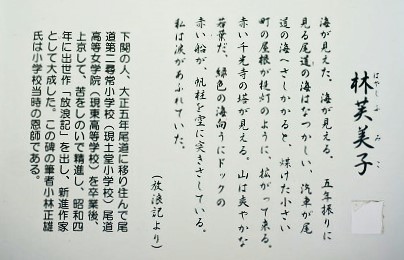 林芙美子
はやしふみこ
海が見えた、海が見える。五年振りに
見る尾道の海はなつかしい、汽車が尾
道の海へさしかかると、煤けた小さい
町の屋根が提灯のように、拡がって来る。
赤い千光寺の塔が見える。山は爽やかな
若葉だ、緑色の海向うにドックの
赤い船が、帆柱を空に突きさしている。
私は涙があふれていた。
(放浪記より)
下関の人、大正五年尾道に移り住んで尾
道第二尋常小学校(現土堂小学校)尾道
高等女学院(現東高等学校)を卒業後、
上京して、苦をしのいで精進し、昭和四
年に出世作「放浪記」を出し、新進作家
として大成した。この碑の筆者小林正雄
氏は小学校当時の恩師である。